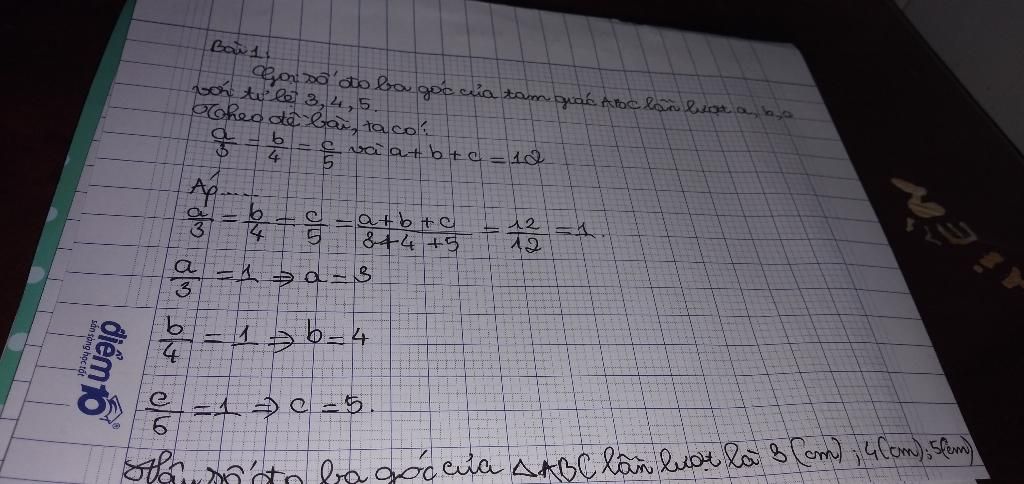 Bài 1:
Gọi số đo ba góc của tam giác ABC lần lượt a, b, c
với tỉ lệ 3, 4, 5.
Theo đề bài, ta có:
a/3 = b/4 = c/5 và a + b + c = 12
Áp......
a/3 = b/4 = c/5 = a + b + c / 3 + 4 + 5 = 12/12 = 1.
a/3 = 1 ⇒ a = 3
b/4 = 1 ⇒ b = 4
c/5 = 1 ⇒ c = 5.
Vậy số đo ba góc của △ABC lần lượt là 3 (cm) ; 4 (cm) ; 5 (cm)
điểm 10
sẵn sàng học tốt